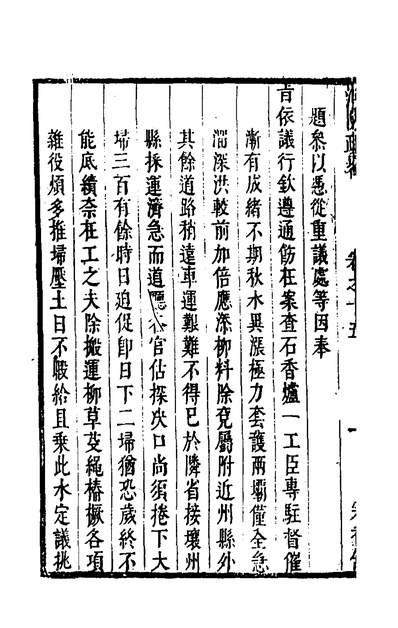 題叅以憑從重議處等因奉
旨依議行欽遵通飭在案查石香爐一工臣專駐督催
漸有成緒不期秋水異漲極力套護兩壩僅全急
溜深洪較前加倍應添柳料除兗屬附近州縣外
其餘道路稍遠車運艱難不得已於隣省接壤州
縣採運濟急而道廳各官估探決口尚須捲下大
埽三百有餘時日迫促卽日下二埽猶恐歲終不
能底績奈在工之夫除搬運柳草芟繩樁橛各項
雜役煩多推埽壓土日不暇給且乗此水定議挑
卷之十五
一